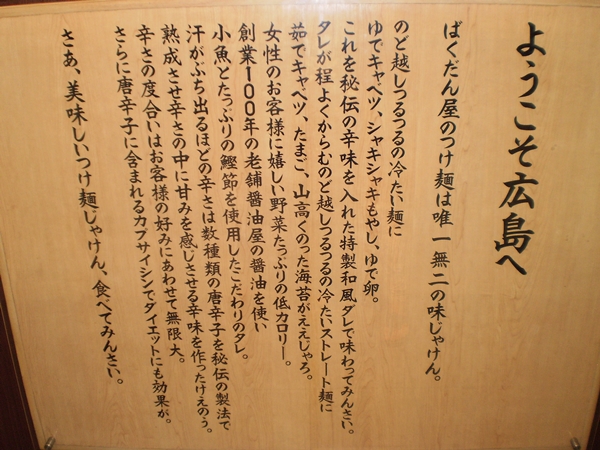 ようこそ広島へ
ばくだん屋のつけ麺は唯一無二の味じゃけん。
のど越しつるつるの冷たい麺に
ゆでキャベツ、シャキシャキもやし、ゆで卵。
これを秘伝の辛味を入れた特製和風ダレで味わってみんさい。
タレが程よくからむのど越しつるつるの冷たいストレート麺に
茹でキャベツ、たまご、山高くのった海苔がええじゃろ。
女性のお客様に嬉しい野菜たっぷりの低カロリー。
創業100年の老舗醤油屋の醤油を使い
小魚とたっぷりの鰹節を使用したこだわりのタレ。
汗がぶち出るほどの辛さは数種類の唐辛子を秘伝の製法で
熟成させ辛さの中に甘みを感じさせる辛味を作ったけえのう。
辛さの度合いはお客様の好みにあわせて無限大。
さらに唐辛子に含まれるカプサイシンでダイエットにも効果が。
さあ、美味しいつけ麺じゃけん、食べてみんさい。